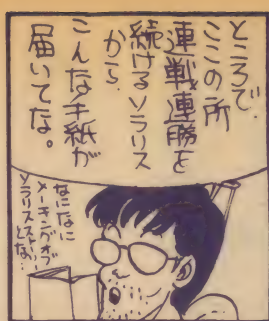 ところで、
ここの所
連戦連勝を
続けるソラリス
から、
こんな手紙が
届いてな。
なになに
メーキングオブ
ソラリスストーリー
とな…